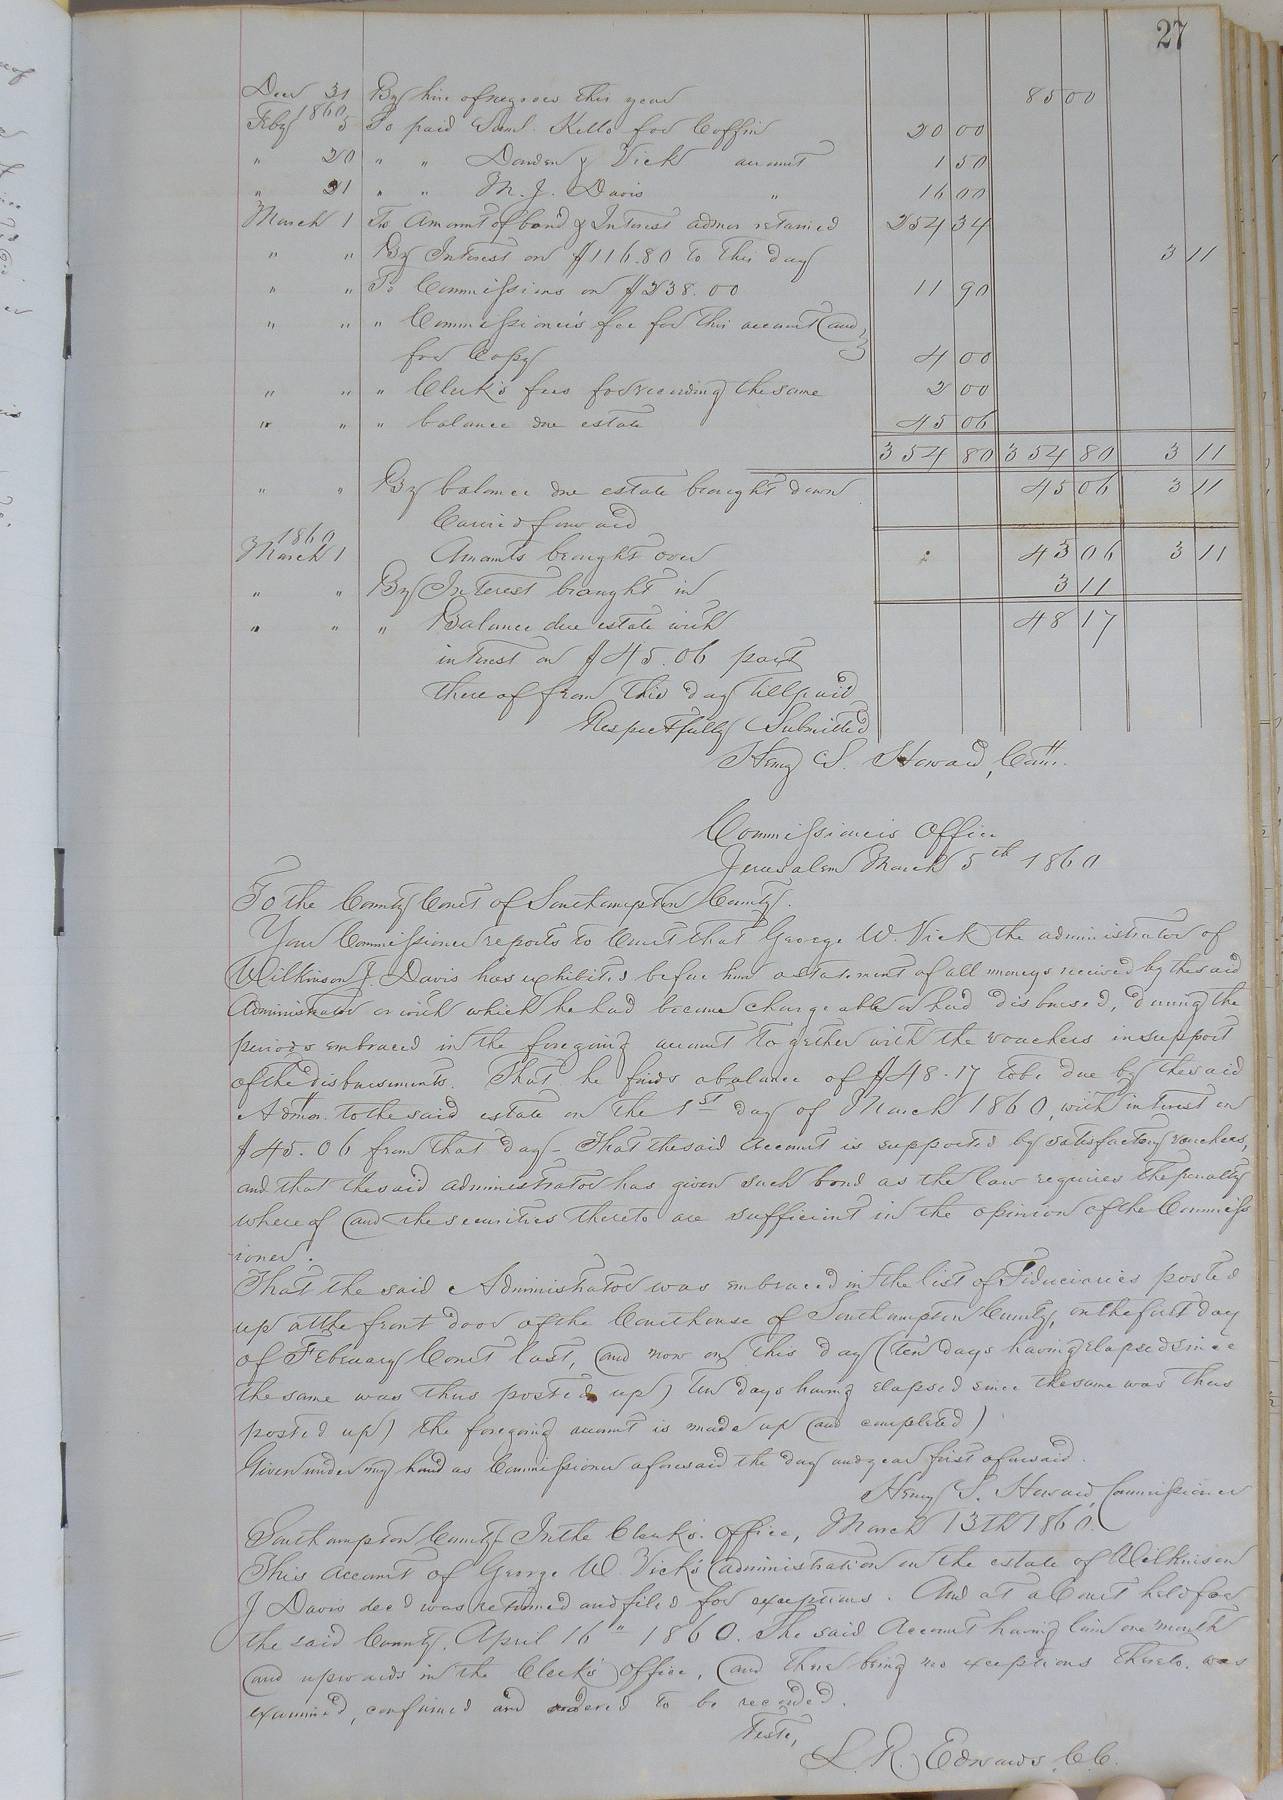 27
Decr 31 By hire of negroes this year 85 00
1860
Feby 5 To paid Saml. Kello for Coffin 20 00
" 20 " " Darden & Vick account 1 50
" 21 " " M. J. Davis " 16 00
March 1 To Amount of bond & Interest admor retained 254 34
" " By Interest on $116.80 to this day 3 11
" " To Commissions on $238.00 11 90
" " " Commissioner's fee for this account and
for Copy 4 00
" " " Clerk's fees for recording the same 2 00
" " " balance due estate 45 06
354 80 354 80 3 11
" " By balance due estate brought down 45 06 3 11
Carried forward
1860
March 1 Amounts brought over 45 06 3 11
" " By Interest brought in 3 11
" " " Balance due estate with 48 17
interest on $45.06 part
there of from this day till paid
Respectfully Submitted
Henry S. Howard, Com.
Commissioners Office
Jerusalem March 5th 1860
To the County Court of Southampton County.
Your Commissioner reports to Court that George W. Vick the administrator of
Wilkinson J. Davis has exhibited before him a statement of all moneys received by the said
Administrator or with which he had become chargeable or had disbursed, during the
periods embraced in the foregoing account together with the vouchers in support
of the disbursements. That he finds a balance of $48.17 to be due by the said
Admor. to the said estate on the 1st day of March 1860, with interest on
$45.06 from that day - That the said Account is supported by satisfactory vouchers,
and that the said administrator has given such bond as the law requires the penalty
where of and the securities thereto are sufficient in the opinion of the Commiss
ioner.
That the said Administrator was embraced in the list of Fiduciaries posted
up at the front door of the Courthouse of Southampton County, on the first day
of February Court last, and now on this day (ten days having elapsed since
the same was thus posted up) ten days having elapsed since the same was thus
posted up) the foregoing account is made up and completed)
Given under my hand as Commissioner aforesaid the day and year first aforesaid.
Henry S. Howard, Commissioner
Southampton County In the Clerk's office, March 13th 1860.
This account of George W. Vick's administration on the estate of Wilkinson
J Davis decd was returned and filed for exceptions. And at a Court held for
the said County, April 16" 1860. The said Account having lain one month
and upwards in the Clerk's office, and there being no exceptions thereto. was
examined, confirmed and ordered to be recorded.
Teste,
L. R. Edwards, C.C.